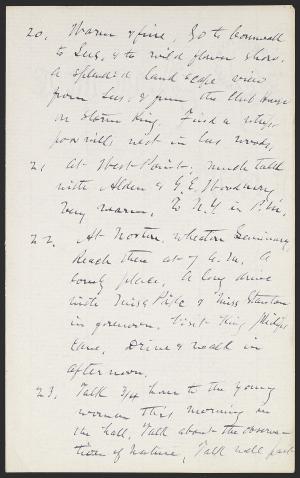 20. Warm & fine, Go to Cornwall
to Lees, & to wild flower show.
a splendid landscape view
from Lees, & from the Club House
on Storm King. Find a whip-
poorwills nest in Lees woods,
21 At West Point; much talk
with Alden & G.E. Woodberry
Very warm. To N.Y. in P.M.
22. At Norton, Wheaton Seminary,
Reach there at 9 A.M. A
lovely place, A long drive
with Miss Pike & Miss Stanton
in forenoon. Visit King Philips
Cave. Drive & walk in
afternoon.
23. Talk 3/4 hour to the young
women this morning in
the hall. Talk about the observa-
tion of nature, Talk well, part